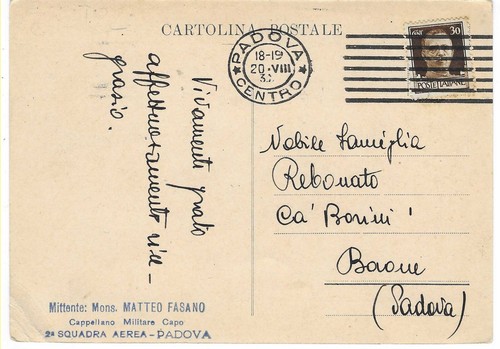 CARTOLINA POSTALE
PADOVA
18-19
20·VIII
CENTRO
30
POSTE ITALIANE
Vivamente grato
affettuosamente rin-
grazio.
Nobile Famiglia
Rebonato
Ca' Borini
Baone
(Padova)
Mittente: Mons. MATTEO FASANO
Cappellano Militare Capo
2ª SQUADRA AEREA - PADOVA